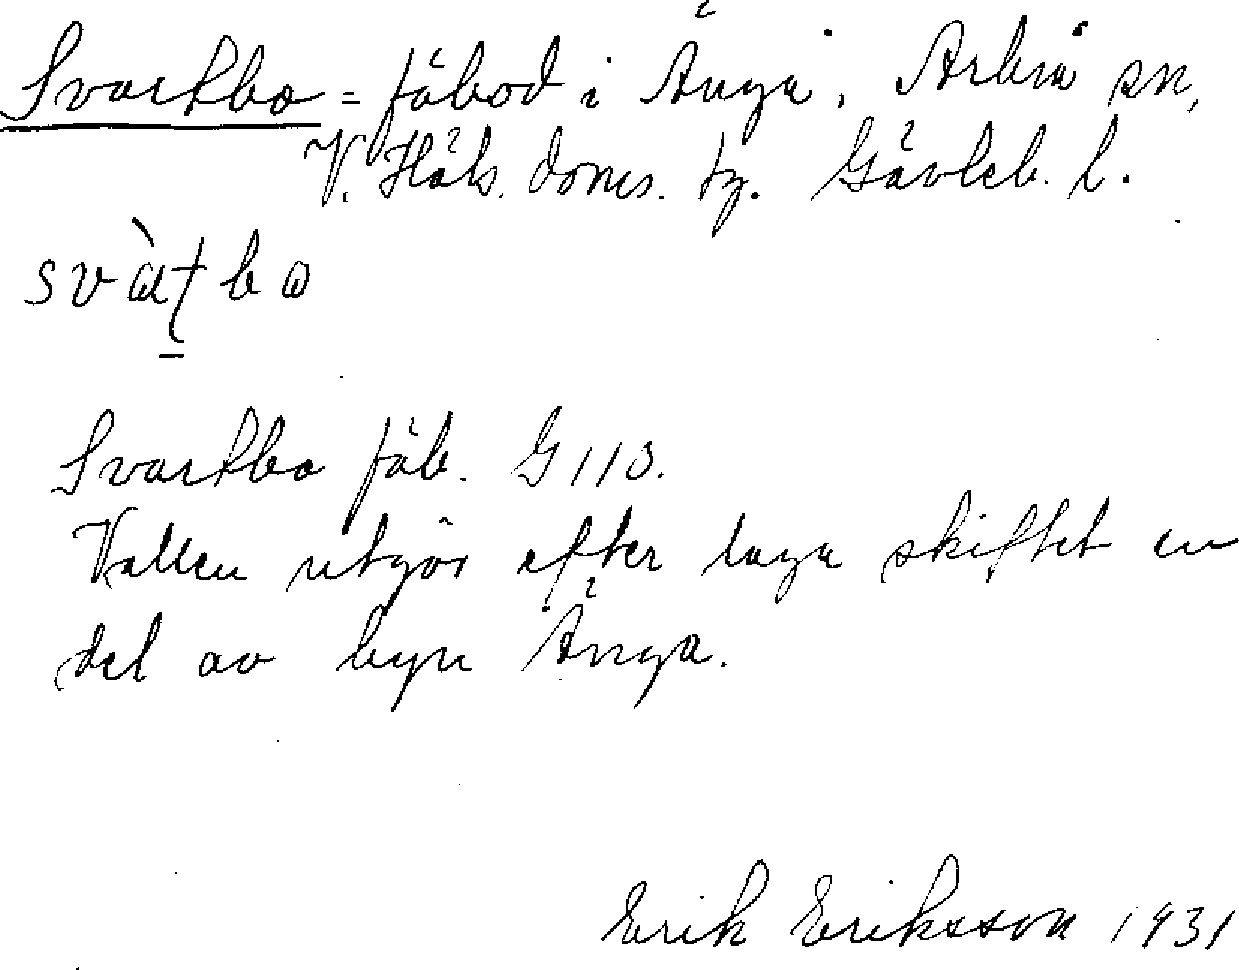 Svartbo = fäbod i Änga, Arbrå sn,
V. Häls. doms. tg. Gävleb. l.
svàțbo
Svartbo fäb. G 110.
Vallen utgör efter laga skiftet en
del av byn Änga.
Erik Eriksson 1931